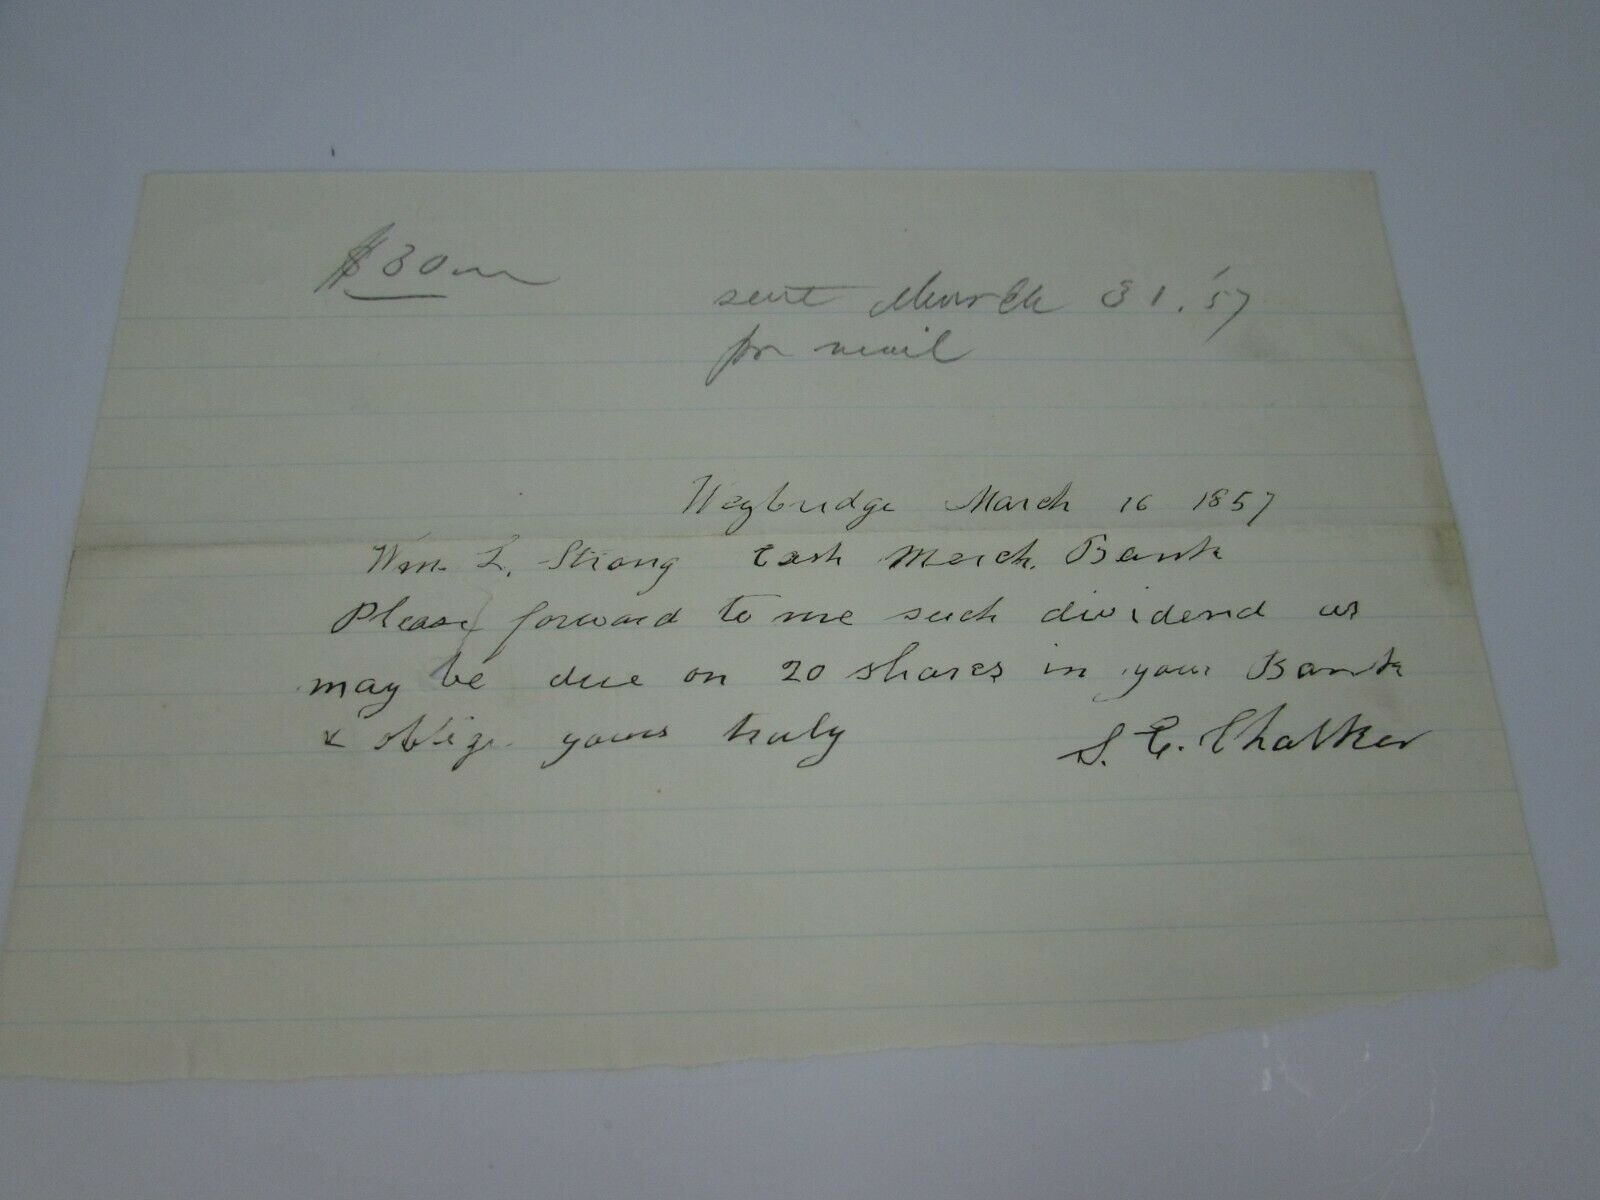 $30
sent March 31. '57
pr mail
Weybridge March 16 1857
Wm. L. Strong Cash Merch. Bank
Please forward to me such dividend as
may be due on 20 shares in your Bank
& oblige yours truly S. E. Chalker